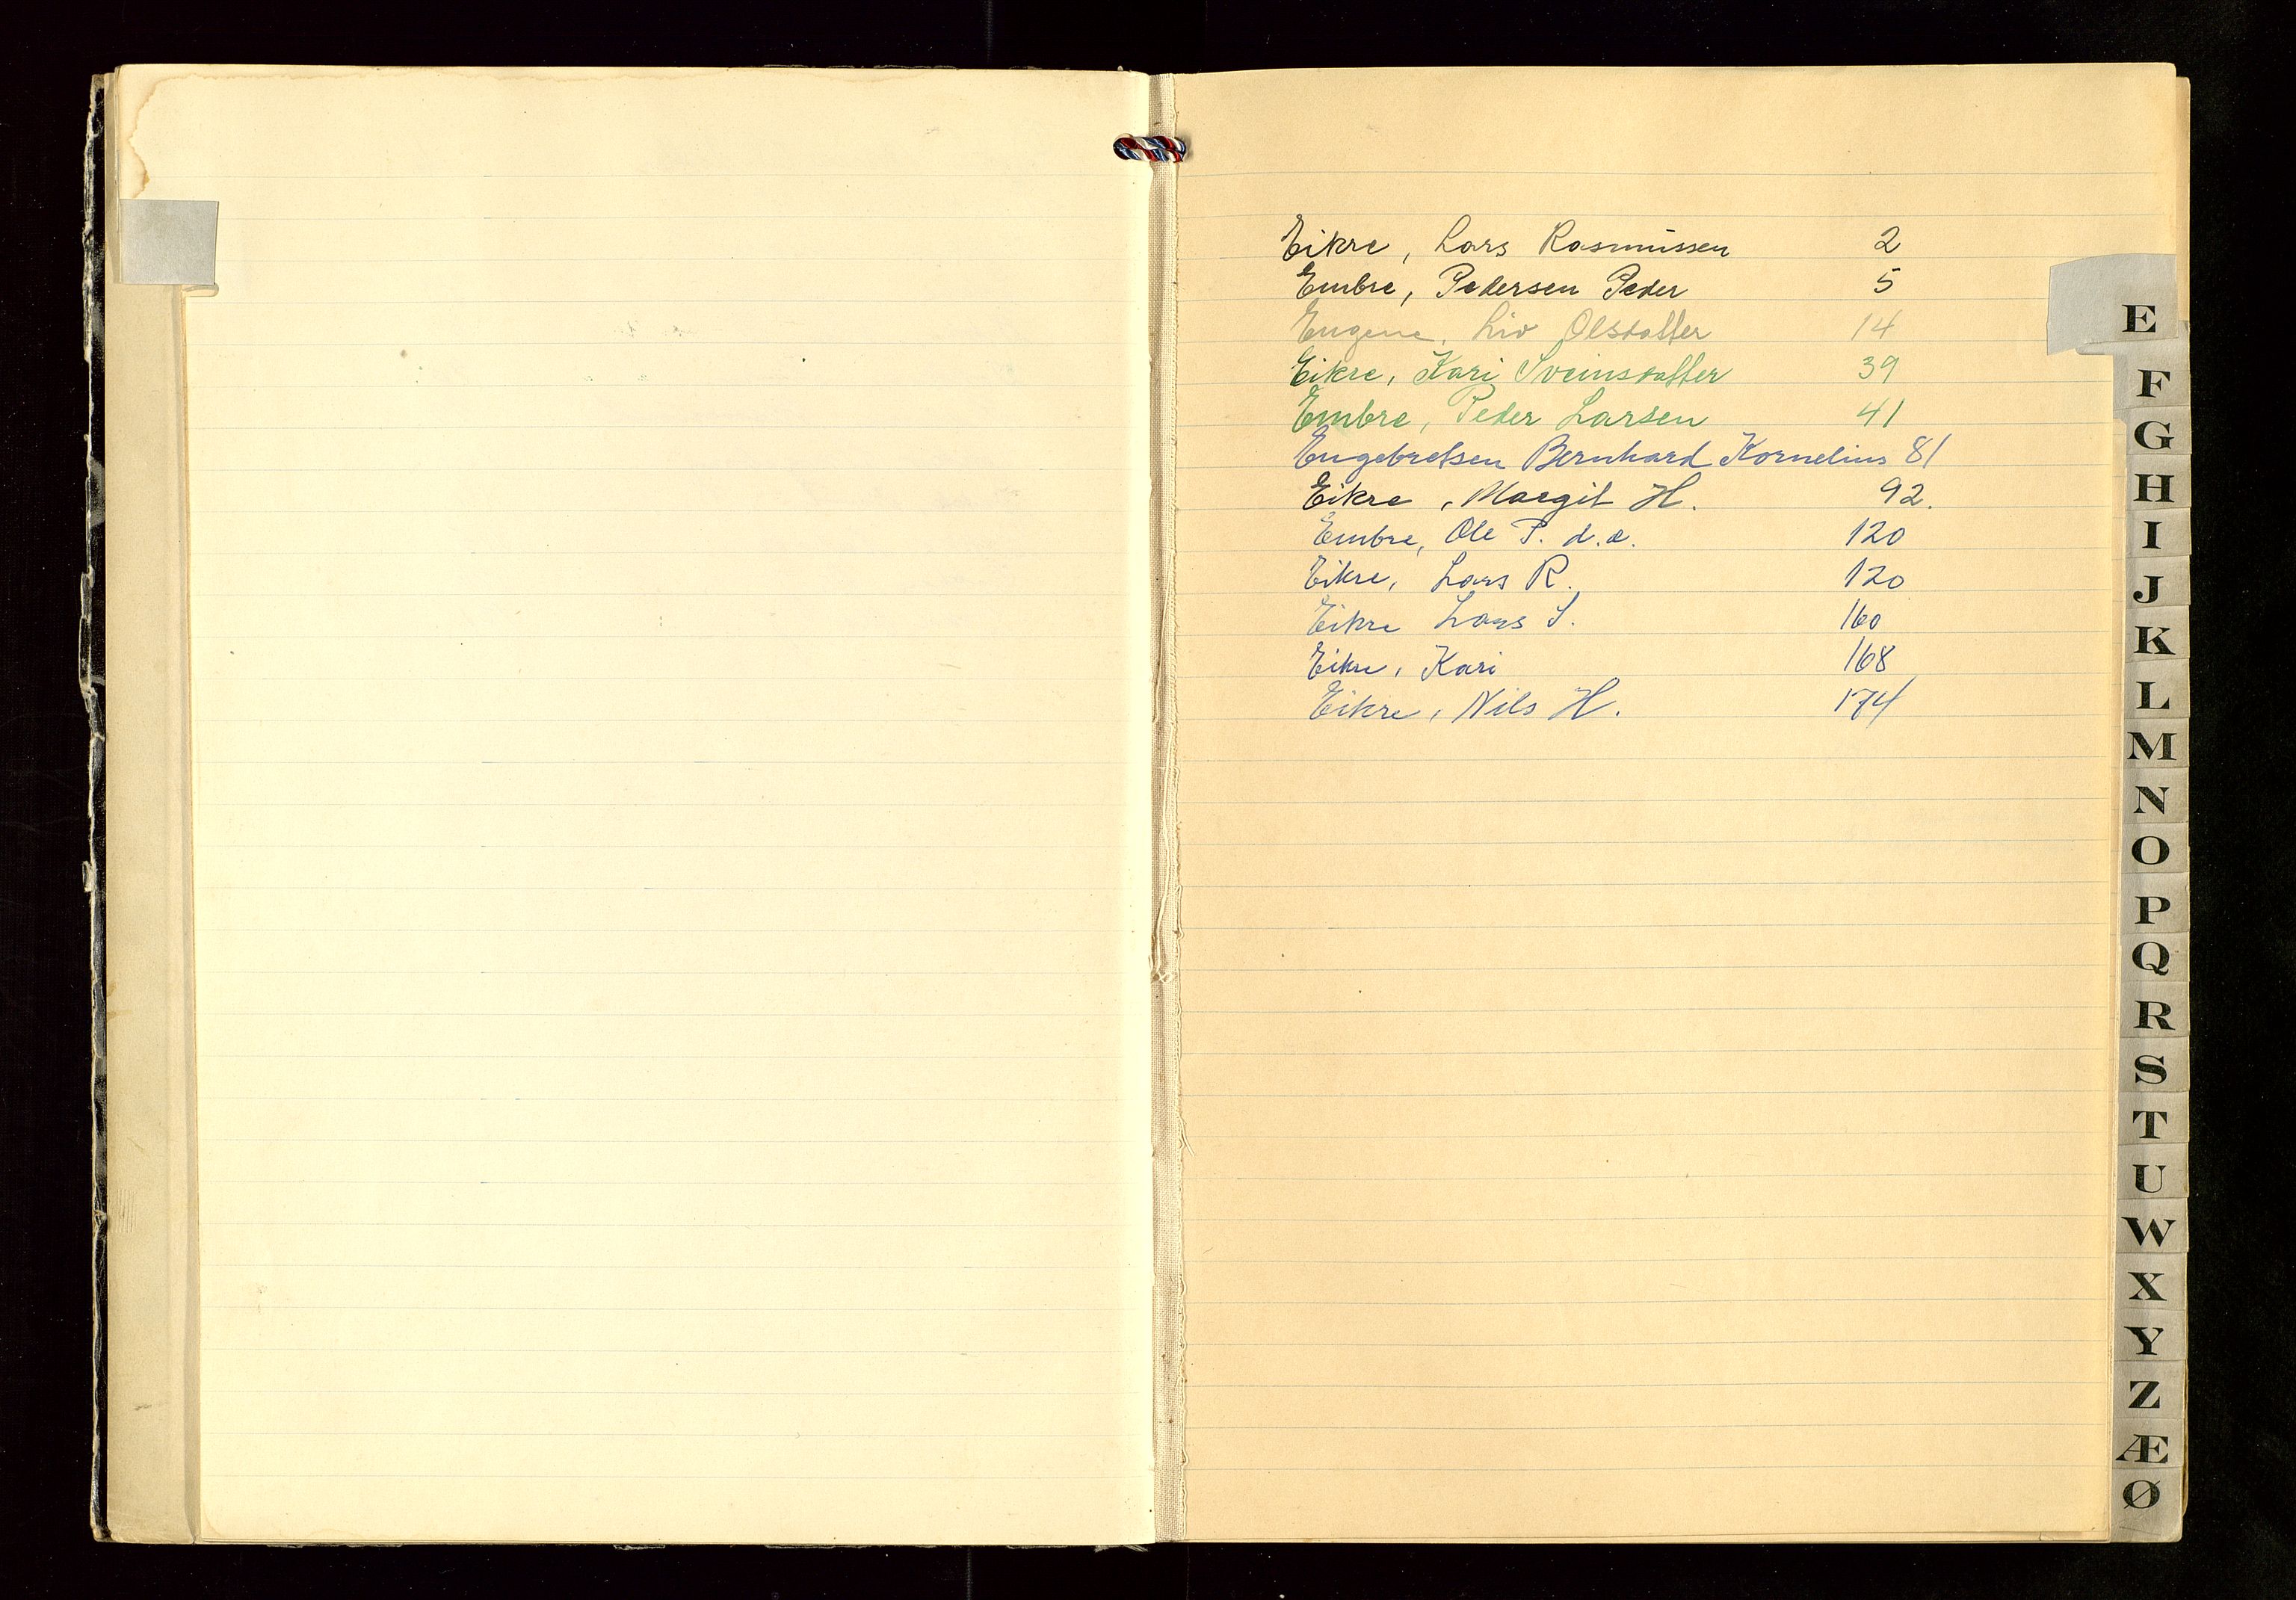 Eikre, Lars Rasmussen 2
Embre, Pedersen Peder 5
Eugene, Liv Olsdatter 14
Eikre, Kari Sveinsdatter 39
Embre, Peder Larsen 41
Engebretsen Bernhard Kornelius 81
Eikre, Margit H. 92.
Embre, Ole P. d.e. 120
Eikre, Lars R. 120
Eikre Lars S. 160
Eikre, Kari 168
Eikre, Nils H. 174
E
F
G
H
I
J
K
L
M
N
O
P
Q
R
S
T
U
W
X
Y
Z
Æ
Ø